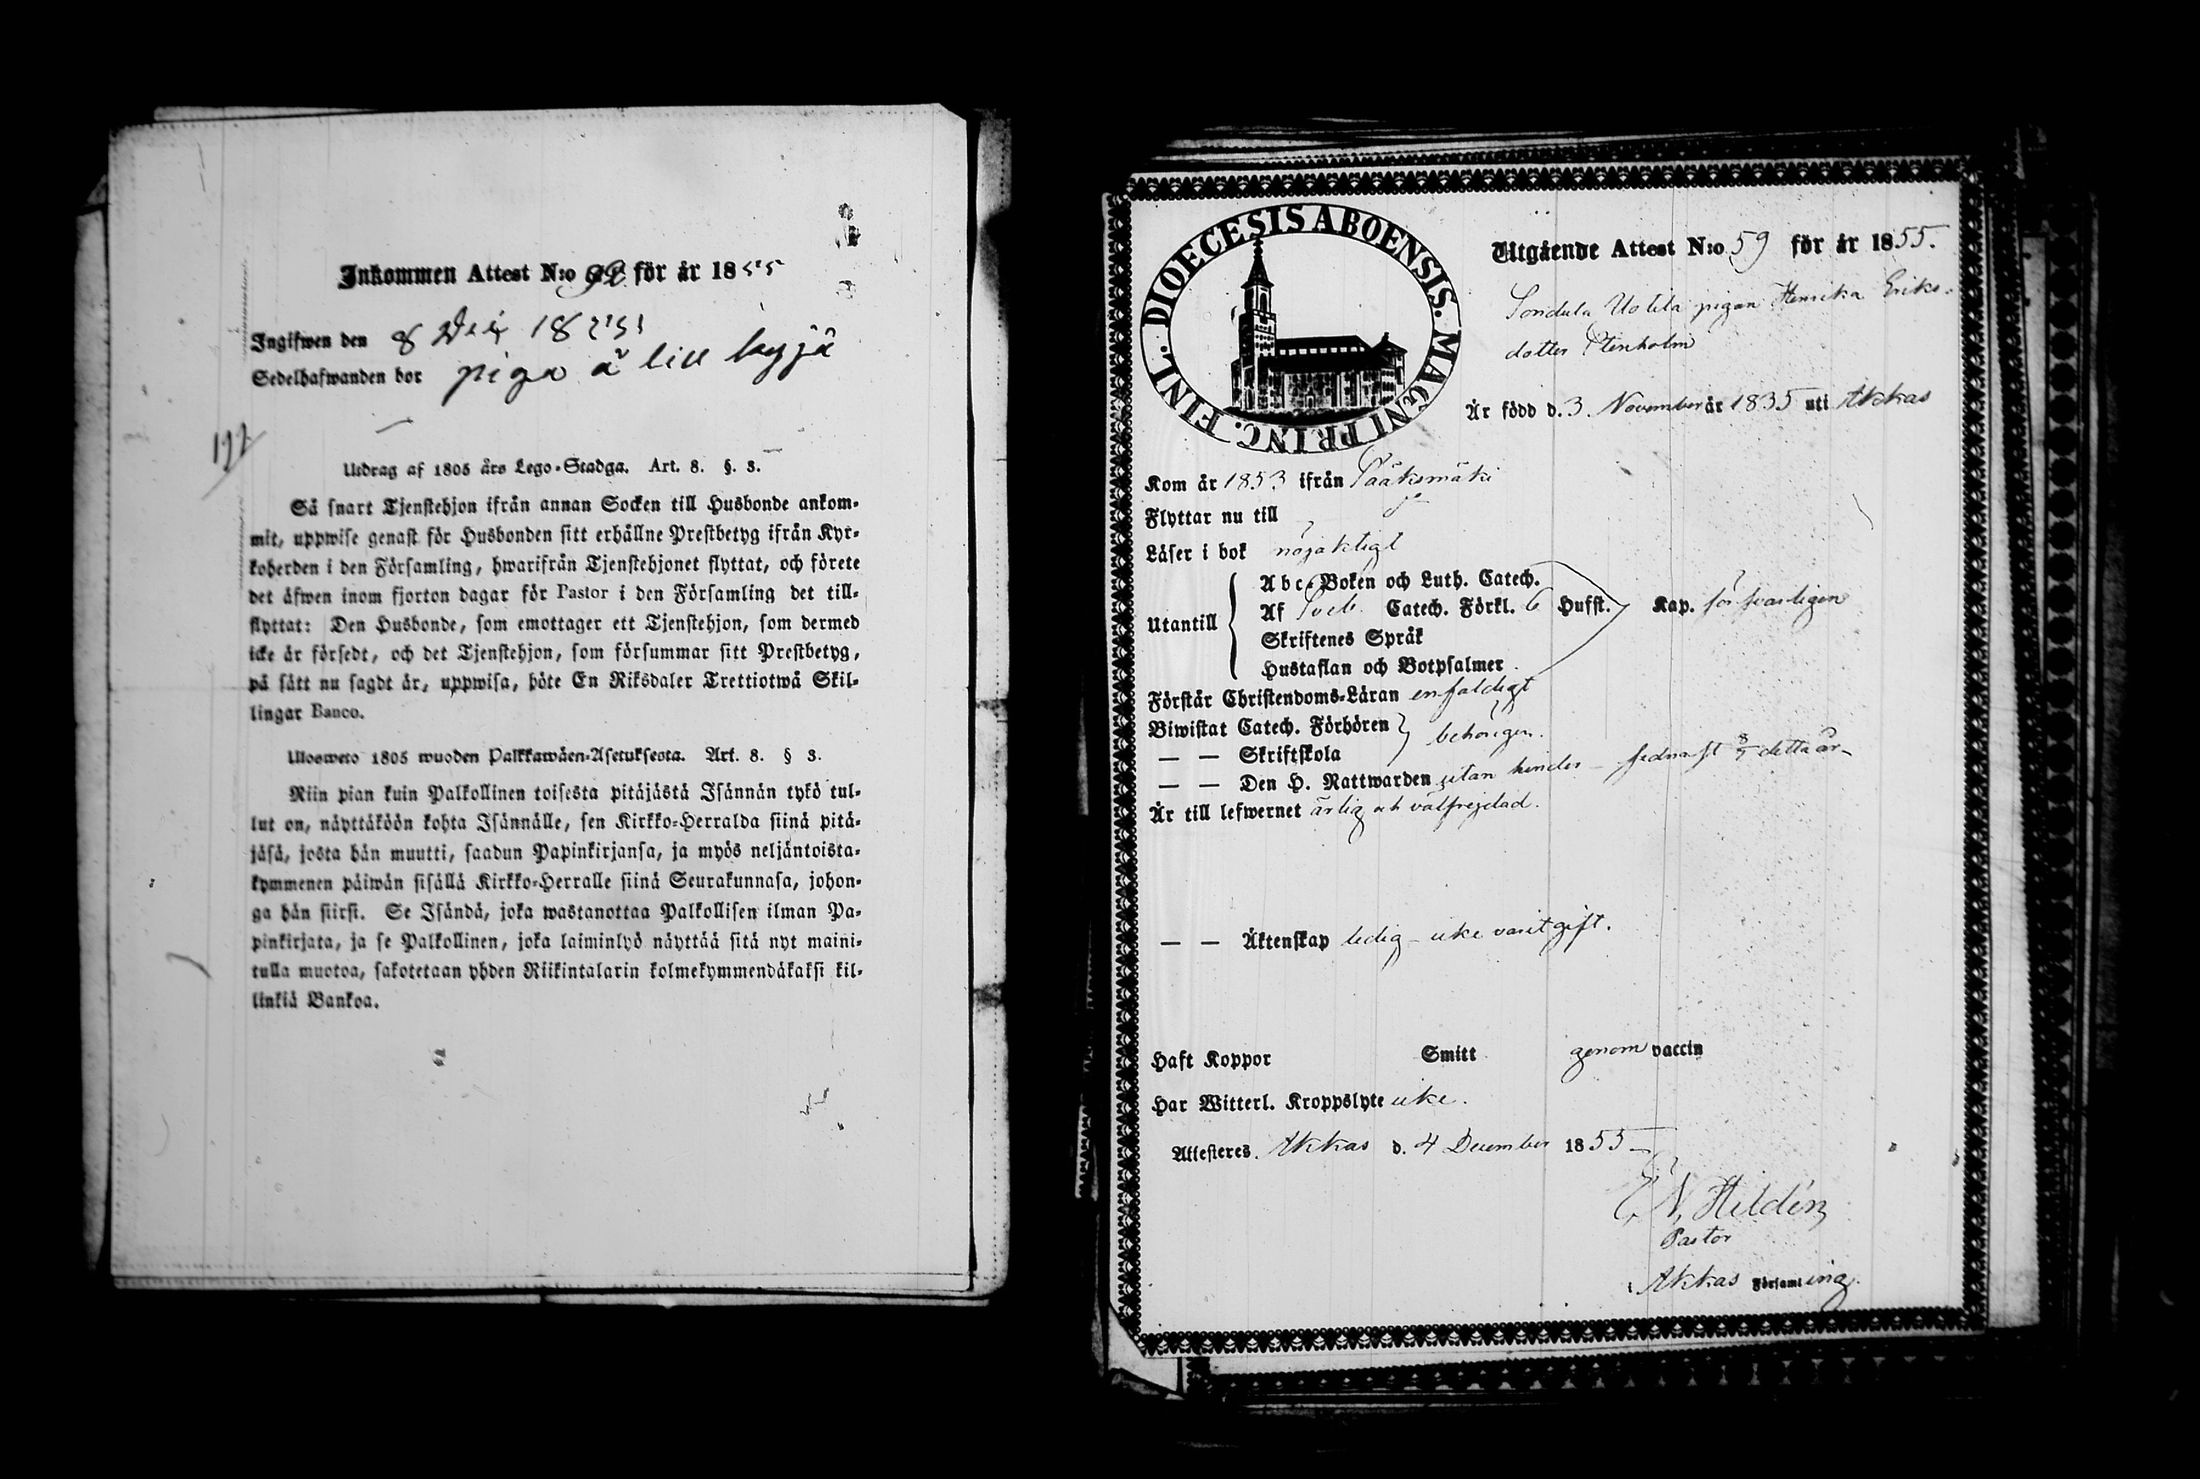 Inkommen Attest N:o 92 för år 1855
Ingifwen den 8 Dec 1855
Sedelhafwanden bor piga å lill kyjä
Utdrag af 1805 års Lego-Stadga. Art. 8. §. 3.
Så snart Tjenstehjon ifrån annan Socken till Husbonde ankom-
mit, uppwise genast för Husbonden sitt erhållne Prestbetyg ifrån Kyr-
koherden i den Församling, hwarifrån Tjenstehjonet flyttat, och förete
det äfwen inom fjorton dagar för Pastor i den Församling det till-
flyttat: Den Husbonde, som emottager ett Tjenstehjon, som dermed
icke är försedt, och det Tjenstehjon, som försummar sitt Prestbetyg,
på sätt nu sagdt är, uppwisa, böte En Riksdaler Trettiotwå Skil-
lingar Banco.
Ulosweto 1805 wuoden Palkkawäen-Asetuksesta. Art. 8. § 3.
Niin pian kuin Palkollinen toisesta pitäjästä Isännän tykö tul-
lut on, näyttäköön kohta Isännälle, sen Kirkko-Herralda siinä pitä-
jäsä, josta hän muutti, saadun Papinkirjansa, ja myös neljäntoista-
kymmenen päiwän sisällä Kirkko-Herralle siinä Seurakunnasa, johon-
ga hän siirsi. Se Isändä, joka wastanottaa Palkollisen ilman Pa-
pinkirjata, ja se Palkollinen, joka laiminlyö näyttää sitä nyt maini-
tulla muotoa, sakotetaan yhden Riikintalarin kolmekymmendäkaksi kil-
linkiä Bankoa.
DIOECESIS ABOENSIS. MAGNI PRINC. FINL.
Utgående Attest N:o 59 för år 1855.
Sondula Uotila pigan Henrika Eriks-
dotter Stenholm
Är född d. 3. November år 1835 uti Akkas
Kom år 1853 ifrån Sääksmäki
Flyttar nu till
Läser i bok nöjaktigt
Utantill
Abc-Boken och Luth. Catech.
Af Sveb. Catech. Förkl. 6 Hufst. Kap. försvarligen
Skriftenes Språk
Hustaflan och Botpsalmer
Förstår Christendoms-Läran enfaldigt
Biwistat Catech. Förhören behörigen.
— — Skriftskola
— — Den H. Nattwarden utan hinder – sednast 8/7 detta år
Är till lefwernet ärlig och välfrejdad.
— — Äktenskap ledig – icke varit gift.
Haft Koppor Smitt genom vaccin
Har Witterl. Kroppslyte icke.
Attesteres Akkas d. 4 December 1855
E. N. Hildén
Pastor
Akkas Församling.